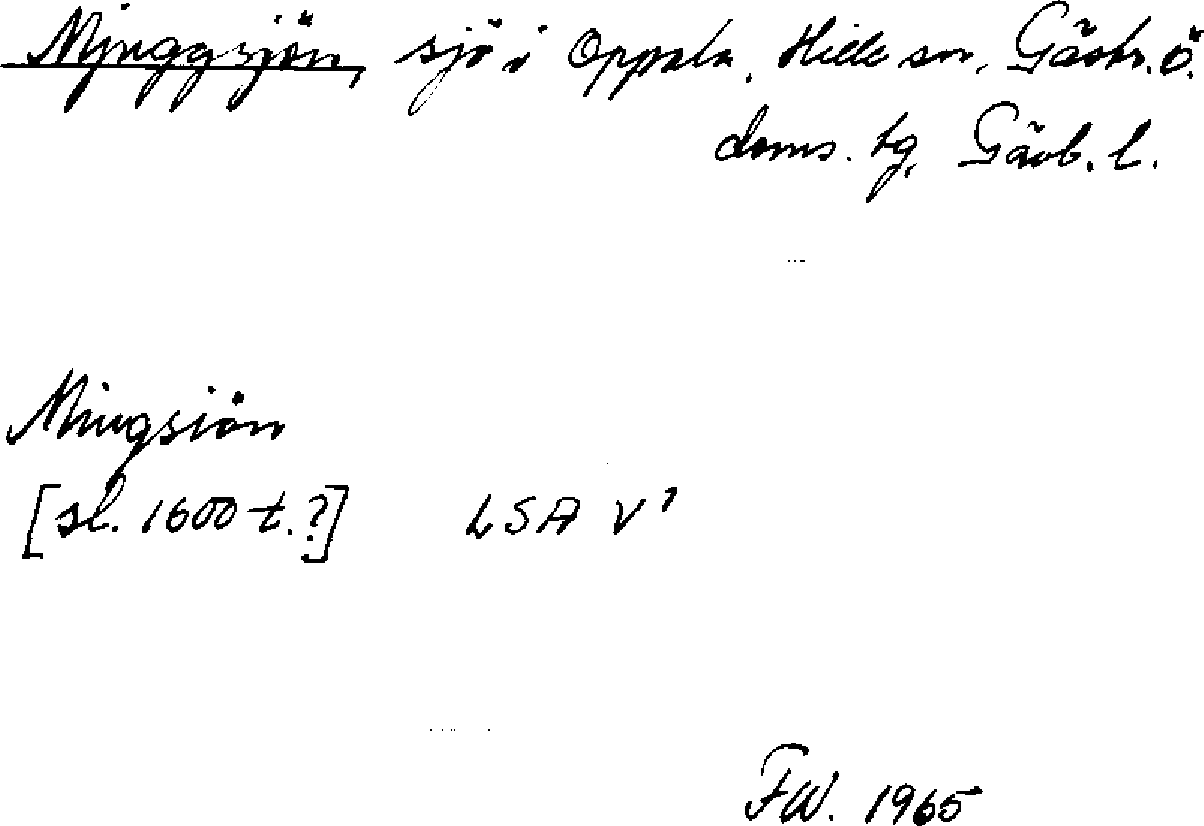 Mjuggsjön, sjö i Oppala, Hille sn, Gästr. ö.
doms. tg, Gävb. l.
Miugsiön
[sl. 1600-t.?] LSA V¹
FW. 1965